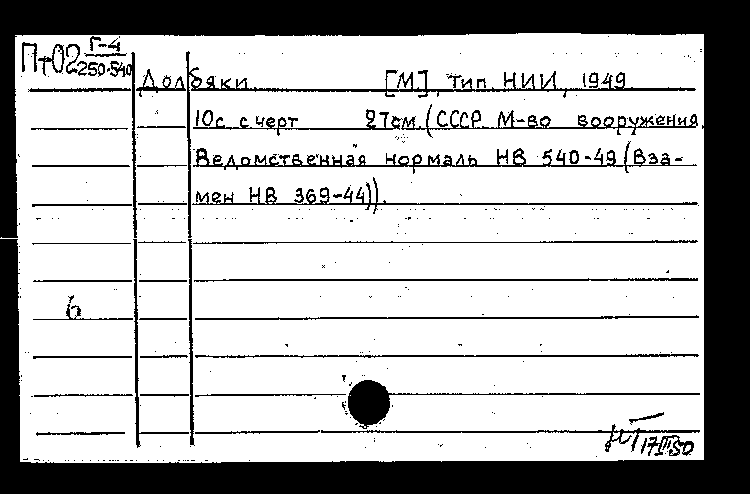 Пт02 Г-4
250-540
Долбяки. [М], тип. НИИ, 1949.
10с. с черт 27см. (СССР. М-во вооружения.
Ведомственная нормаль НВ 540-49 (Вза-
мен НВ 369-44)).
6
17 III 50